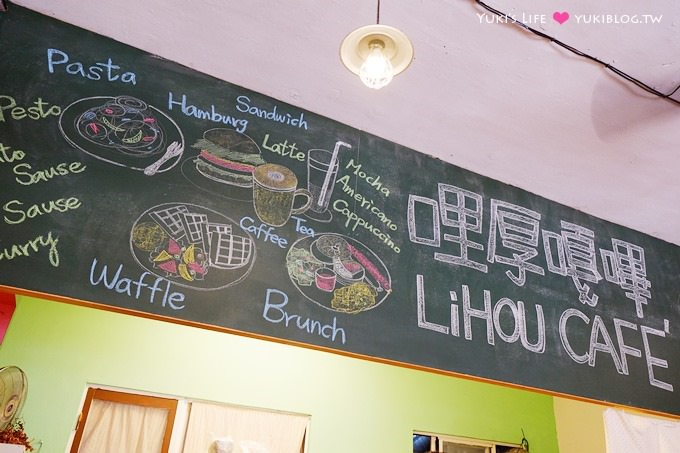 Yuki's Life ♥ yukiblog.tw
Pasta
Pesto
Sause
Sause
Curry
Hamburg
Sandwich
Latte
Mocha
Americano
Cappuccino
Tea
Caffee
Waffle
Brunch
哩厚嘎嗶
LiHOU CAFE'